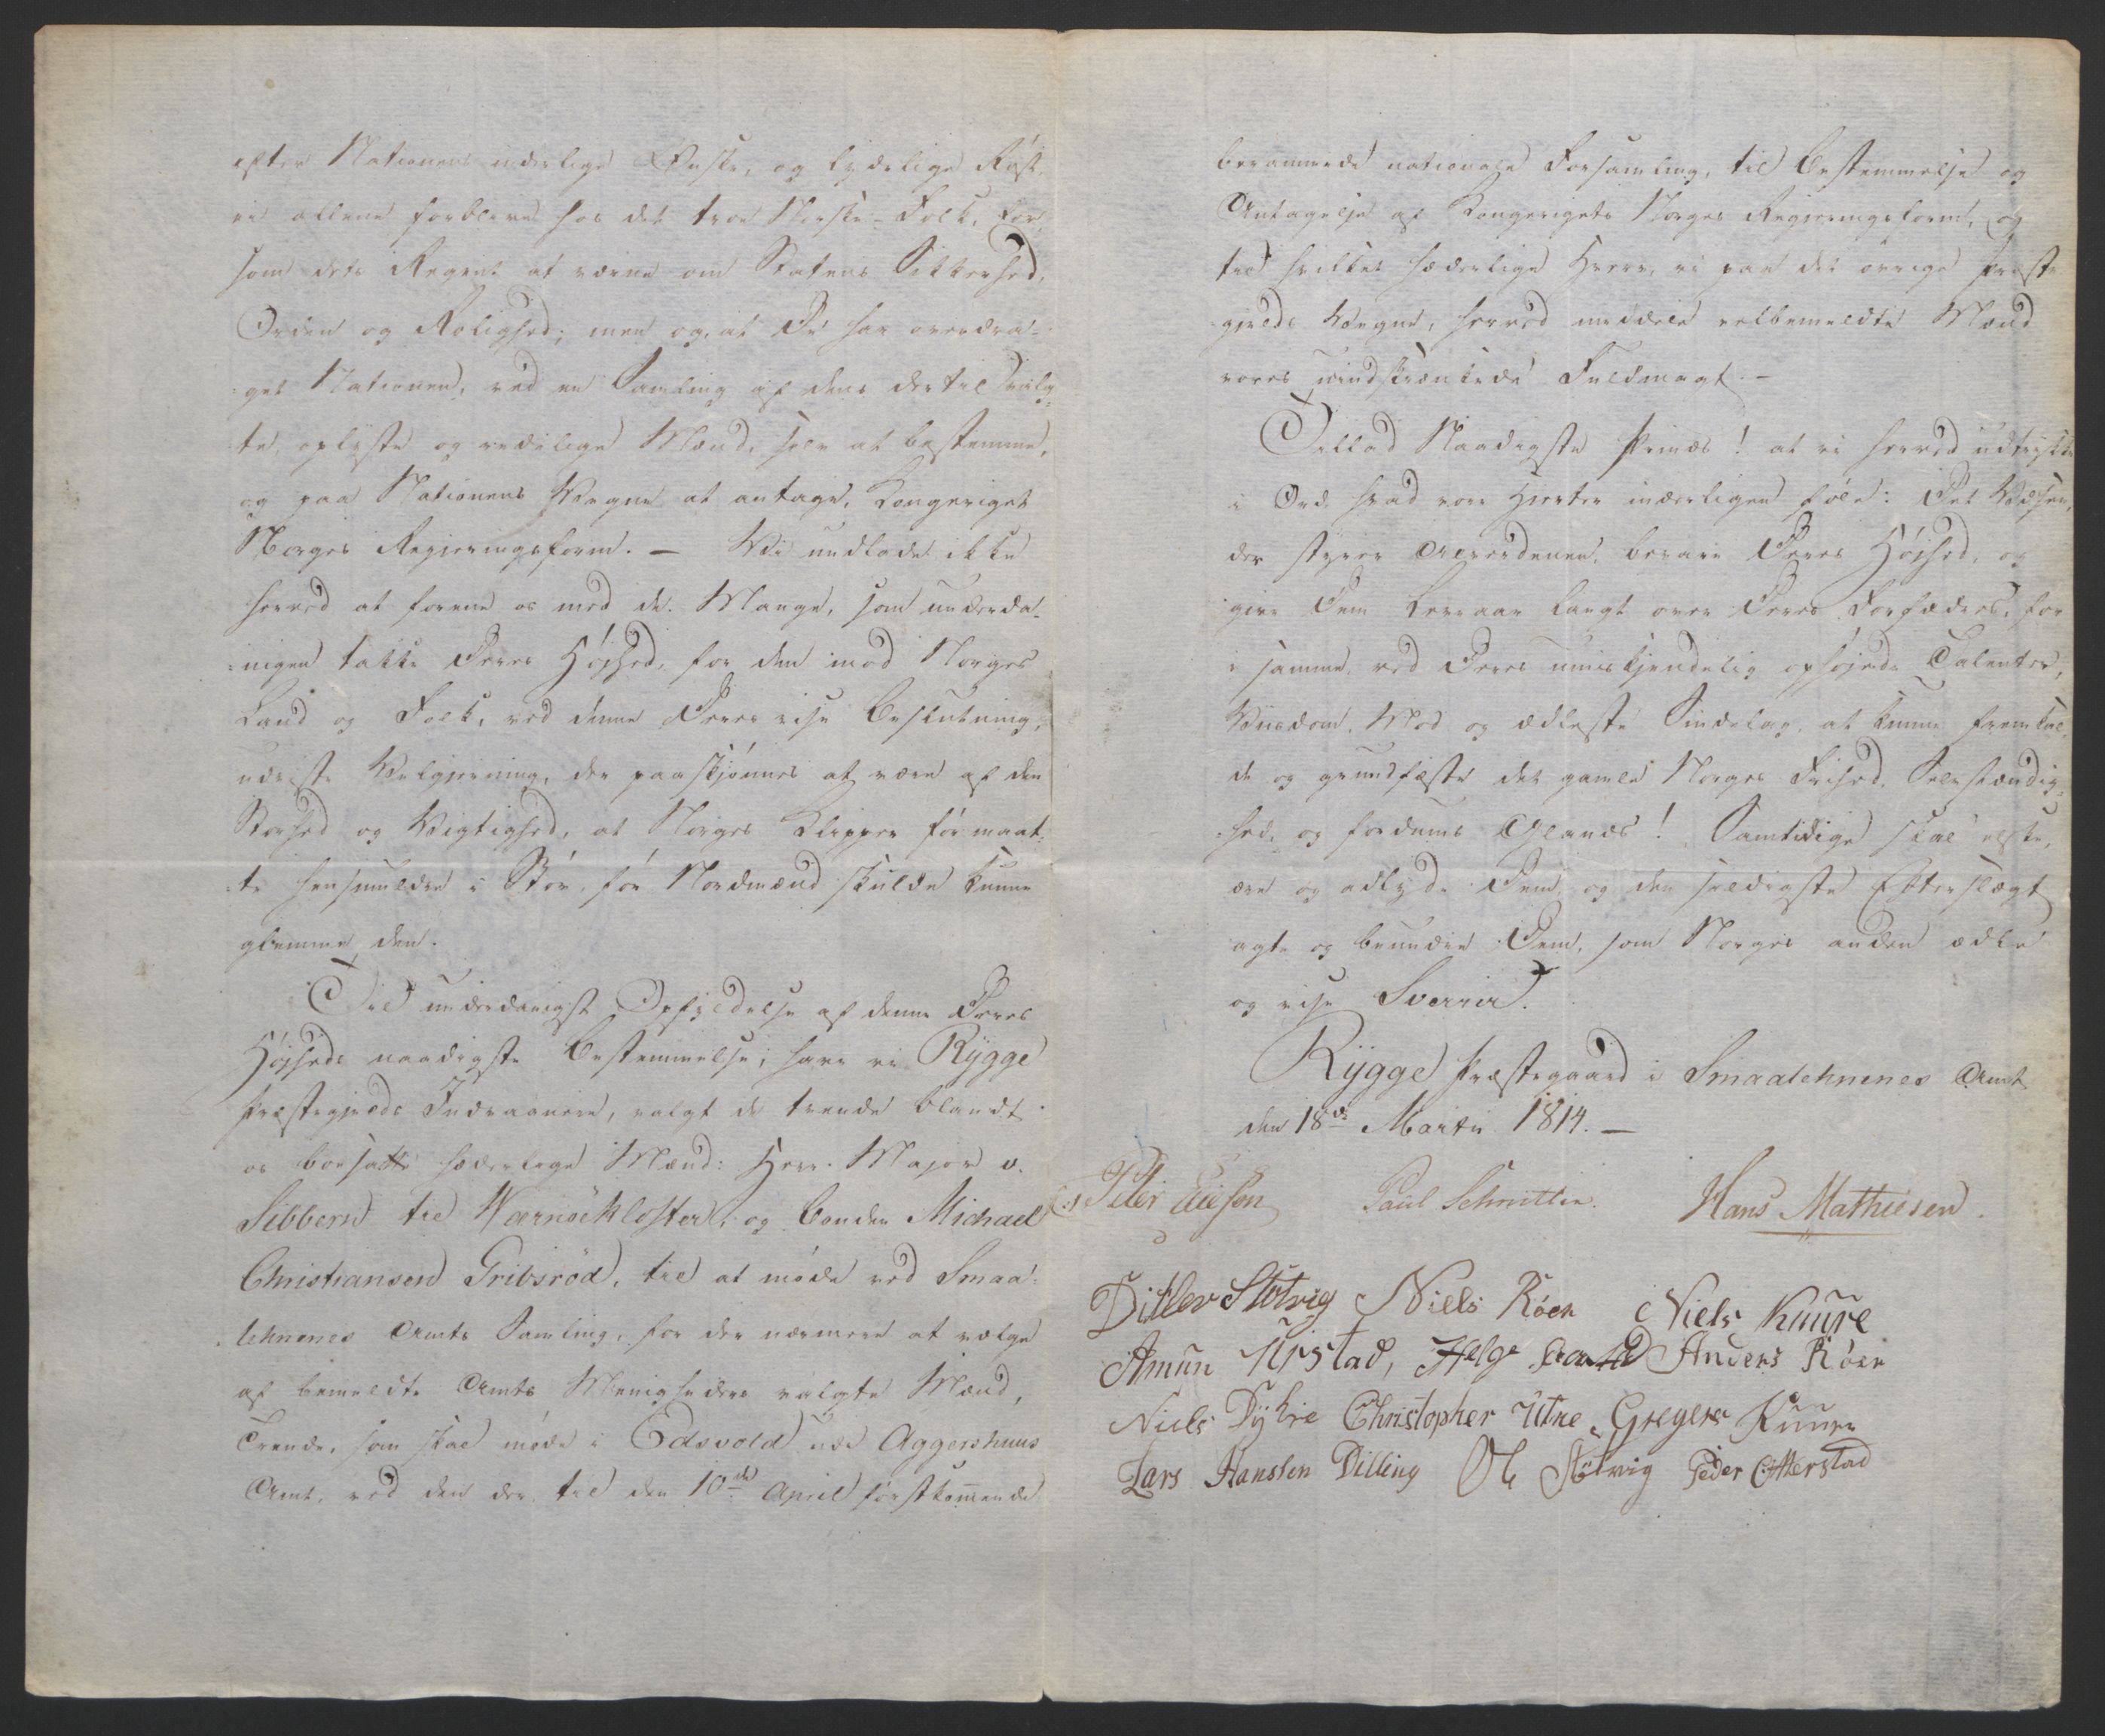 efter Nationens inderlige Ønske, og lydelige Røst,
ei allene forbliver hos det troe Norske-Folk, for,
som dets Regent at værne om Statens Sikkerhed,
Orden og Rolighed; men og, at De har overdra-
get Nationen, ved en Samling af dens dertil valg-
te, oplyste og redelige Mænd, selv at bestemme,
og paa Nationens Vegne at antage, Kongeriget
Norges Regjeringsform. — Vi undlade ikke
herved at forene os med de Mange, som underda-
nigen takke Deres Højhed, for den imod Norges
Land og Folk, ved denne Deres vise Beslutning,
udviste Velgjerning, der paaskjønnes at være af den
Storhed og Vigtighed, at Norges Klipper før maat-
te hensmuldre i Støv, før Nordmænd skulde kunne
glemme den.
Til underdanigst Opfyldelse af denne Deres
Højheds naadigste Bestemmelse, have vi Rygge
Præstegjelds Indvaanere, valgt de tvende blandt
os boesatte hæderlige Mænd: Herr Major v.
Sibbern til Wærnøekloster, og Bonden Michael
Christiansen Gribsrød, til at møde ved Smaa-
lehnenes Amts Samling, for der nærmere at vælge
af bemeldte Amts Menigheders valgte Mænd,
Trende, som skal møde i Edsvold udi Aggershuus
Amt, ved den der til den 10de April førstkommende
berammede nationale Forsamling, til Bestemmelse og
Antagelse af Kongerigets Norges Regjeringsform, og
til hvilket hæderlige Hverv, vi paa det øvrige Præste-
gjelds Vegne, herved meddele velbemeldte Mænd
vores uindskrænkede Fuldmagt. —
Tillad Naadigste Prinds! at vi herved udtrykke
i Ord, hvad vore Hjerter inderligen føle: Det Væsen,
der styrer Alverdenen, bevare Deres Højhed, og
give Dem Leveaar langt over Deres Forfædres, for
i samme, ved Deres umiskjendelig ophøjede Talenter,
Viisdom, Mod og ædleste Sindelag, at kunne fremkal-
de og grundfæste det gamle Norges Frihed, Selvstændig-
hed, og fordums Glands! Samtidige skal elske,
ære og adlyde Dem, og den sildigste Efterslægt
agte og beundre Dem, som Norges anden ædle
og vise Sverrir.
Rygge Præstegaard i Smaalehnenes Amt
den 18de Martii 1814. —
Peter Eliesøn Paul Schmitler. Hans Mathiesen.
Ditlev Støtvig Niels Røer Niels Kuure
Amun Urstad, Helge Anders Røer
Niels Dyhre Christopher Utne Gregers Kuure
Lars Hanssen Dilling Ole Støtvig Peder Otterstad